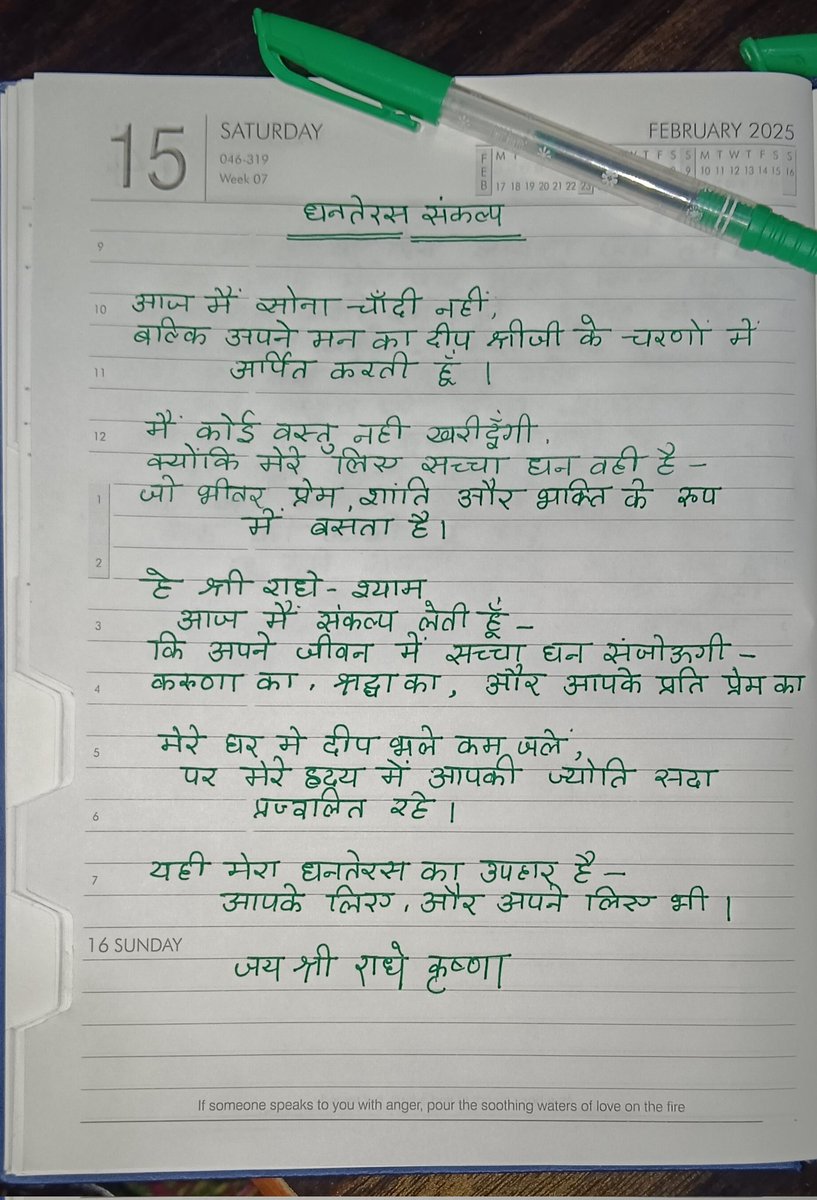 15
SATURDAY
046-319
Week 07
FEBRUARY 2025
FEB
M T F S S M T W T F S S
9 10 11 12 13 14 15 16
17 18 19 20 21 22 23
धनतेरस संकल्प
9
10 आज मैं सोना चाँदी नहीं,
बल्कि अपने मन का दीप श्रीजी के चरणों में
11 अर्पित करती हूँ ।
12 मैं कोई वस्तु नही खरीदूँगी,
क्योंकि मेरे लिए सच्चा धन वही है –
1 जो भीतर प्रेम, शांति और भक्ति के रूप
में बसता है।
2
हे श्री राधे - श्याम
3 आज मैं संकल्प लेती हूँ –
कि अपने जीवन में सच्चा धन संजोऊगी –
4 करुणा का, श्रद्धा का, और आपके प्रति प्रेम का
5 मेरे घर मे दीप भले कम जलें,
पर मेरे हृदय में आपकी ज्योति सदा
6 प्रज्वलित रहे ।
7 यही मेरा धनतेरस का उपहार है –
आपके लिए, और अपने लिए भी ।
16 SUNDAY
जय श्री राधे कृष्णा
If someone speaks to you with anger, pour the soothing waters of love on the fire